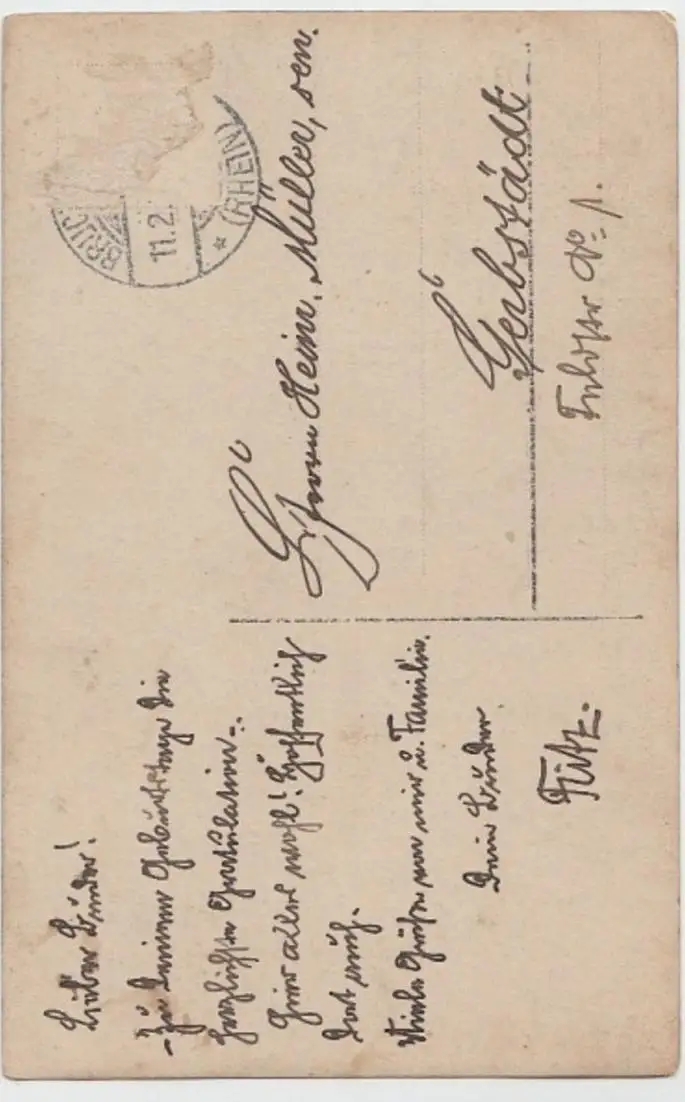 Lieber Bruder!
Zu Deinem Geburtstage die
herzlichste Gratulation.
Hier alles wohl! Hoffentlich
dort auch.
Viele Grüße von mir u. Familie.
Dein Bruder
Fritz.
BRUC
11.2.
(RHEIN)
Herrn Heinr. Müller, sen.
Gerbstädt
No 1.